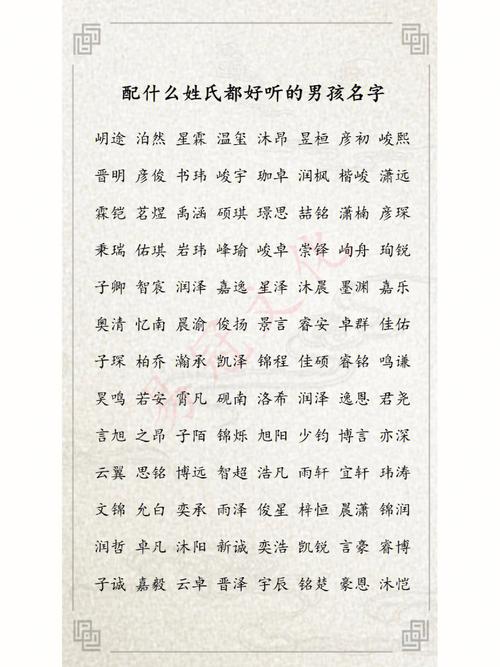 配什么姓氏都好听的男孩名字
岄途 泊然 星霖 温玺 沐昂 昱桓 彦初 峻熙
晋明 彦俊 书玮 峻宇 珈卓 润枫 楷峻 潇远
霖铠 茗煜 禹涵 硕琪 璟思 喆铭 潇楠 彦琛
秉瑞 佑琪 岩玮 峰瑜 峻卓 崇铎 峋舟 珣锐
子卿 智宸 润泽 嘉逸 星泽 沐晨 墨渊 嘉乐
奥清 忆南 晨渝 俊扬 景言 睿安 卓群 佳佑
子琛 柏乔 瀚承 凯泽 锦程 佳硕 睿铭 鸣谦
昊鸣 若安 霄凡 砚南 洛希 润泽 逸恩 君尧
言旭 之昂 子陌 锦烁 旭阳 少钧 博言 亦深
云翼 思铭 博远 智超 浩凡 雨轩 宜轩 玮涛
文锦 允白 奕承 雨泽 俊星 梓恒 晨潇 锦润
润哲 卓凡 沐阳 新诚 奕浩 凯锐 言豪 睿博
子诚 嘉毅 云卓 晋泽 宇辰 铭楚 豪恩 沐恺